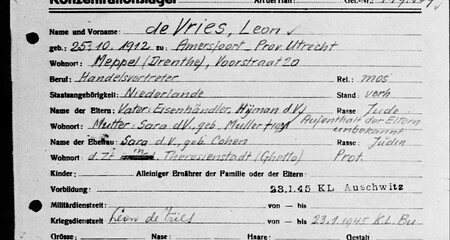 Konzentrationslager Art der Haft:
Name und Vorname: de Vries, Leon
geb.: 25.10.1912 zu Amersfoort Prov. Utrecht
Wohnort: Meppel (Drenthe), Voorstraat 20
Beruf: Handelsvertreter Rel.: mos
Staatsangehörigkeit: Niederlande Stand: verh
Name der Eltern: Vater: Eisenhändler, Hijman d.V. Rasse: Jude
Wohnort: Mutter: Sara d.V., geb. Muller Aufenthalt der Eltern unbekannt
Name der Ehefrau: Sara d.V., geb Cohen Rasse: Jüdin
Wohnort: d. Zt. in Theresienstadt (Ghetto) Prot.
Kinder: Alleiniger Ernährer der Familie oder der Eltern:
Vorbildung: 23.1.45 KL Auschwitz
Militärdienstzeit: von — bis
Kriegsdienstzeit: Leon de Vries von — bis 23.1.1945 KL. Bu
Grösse: Nase: Haare: Gestalt: